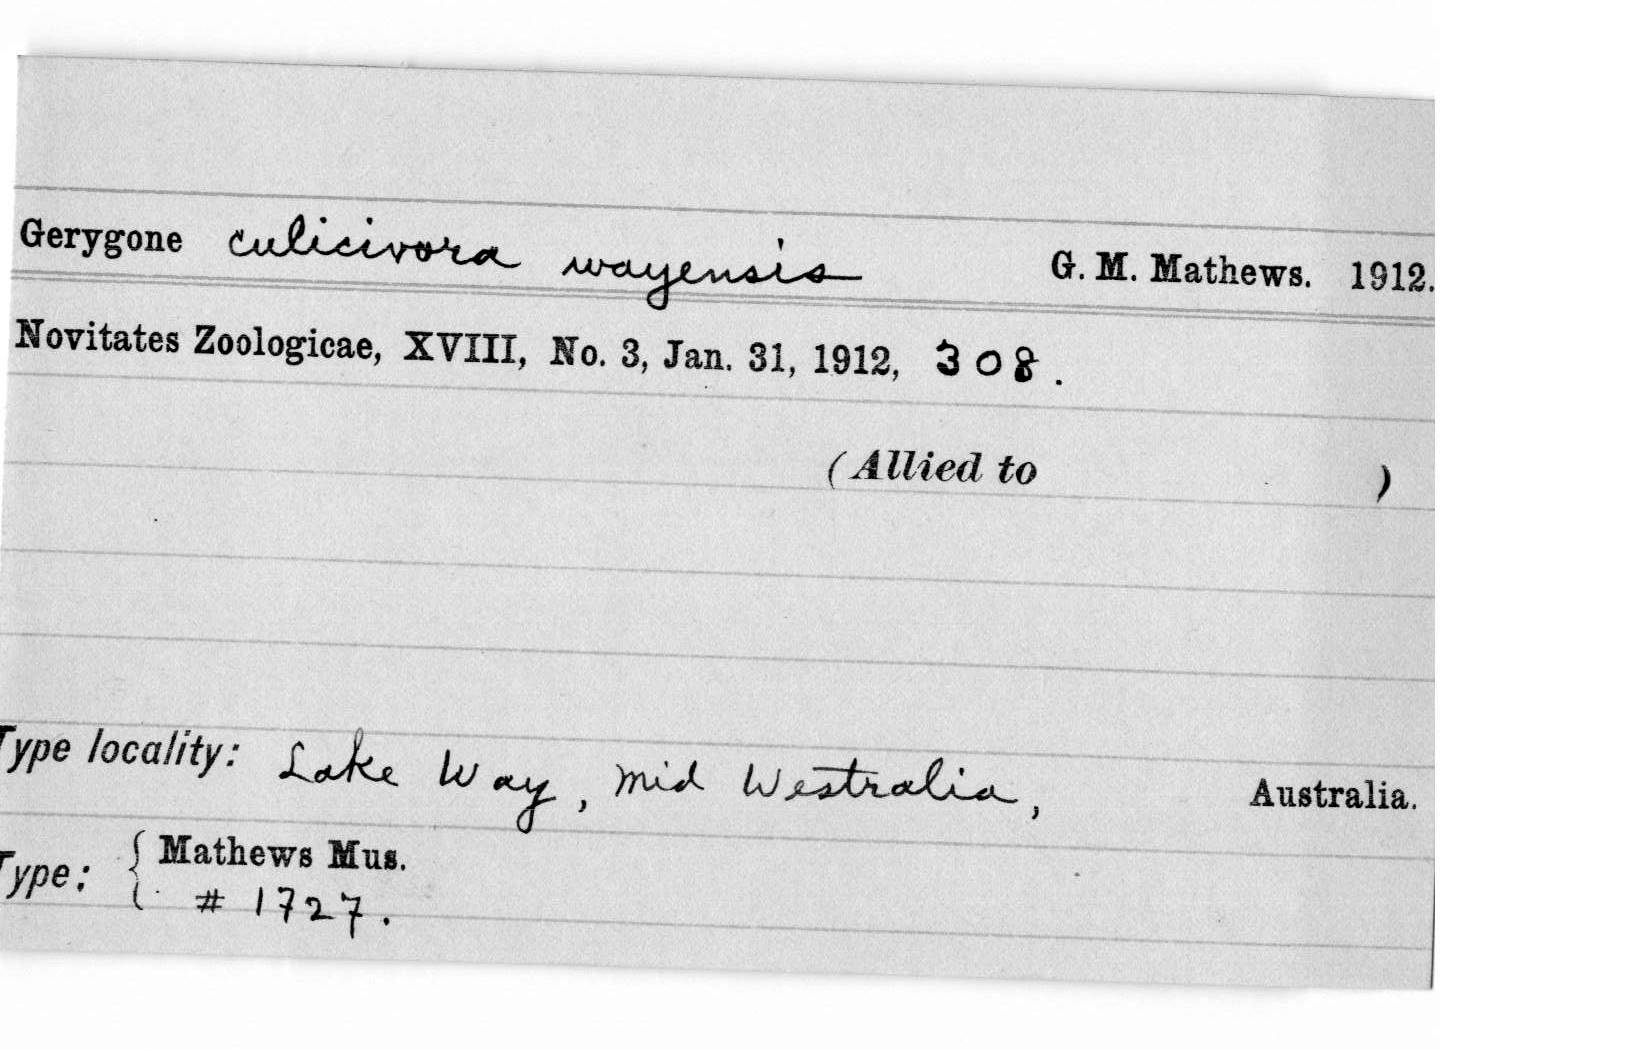 Gerygone culicivora wayensis G. M. Mathews. 1912.
Novitates Zoologicae, XVIII, No. 3, Jan. 31, 1912, 308.
(Allied to )
Type locality: Lake Way, Mid Westralia, Australia.
Type: { Mathews Mus.
# 1727.